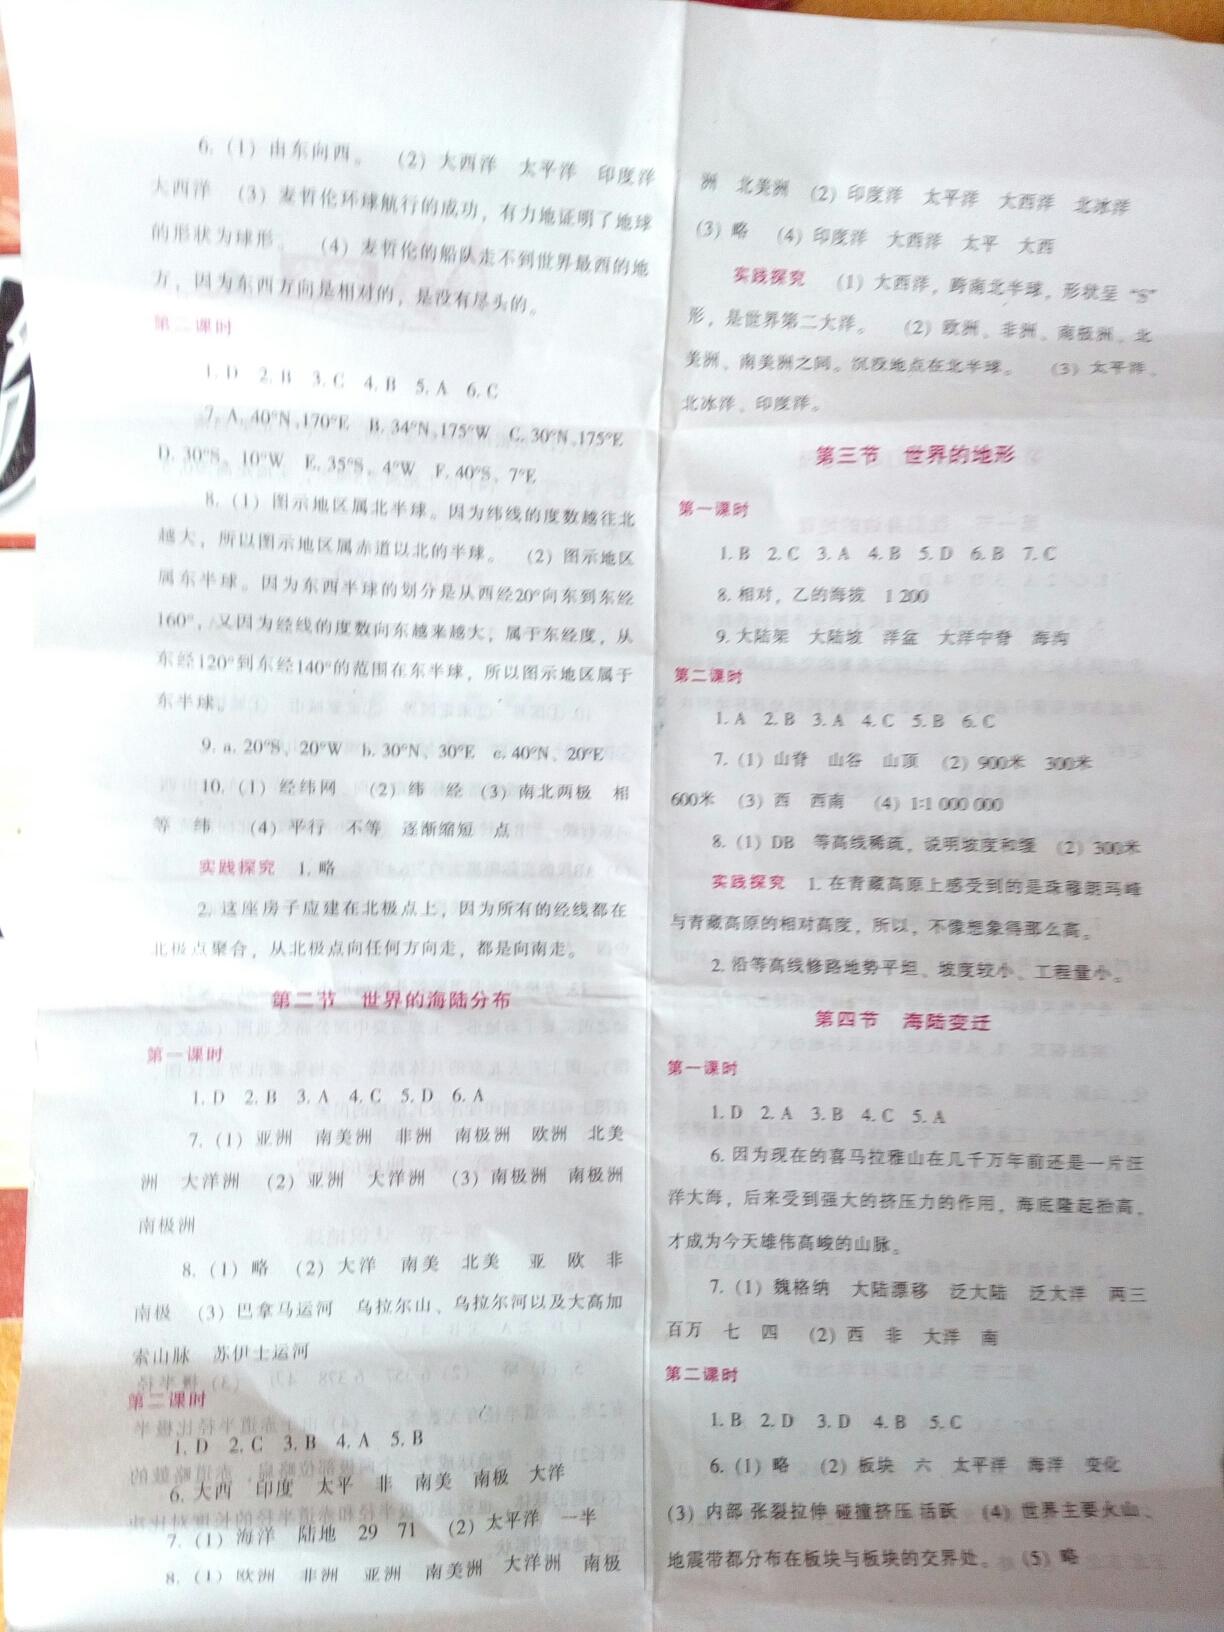 6. (1) 由东向西。 (2) 大西洋 太平洋 印度洋
大西洋 (3) 麦哲伦环球航行的成功，有力地证明了地球
的形状为球形。 (4) 麦哲伦的船队走不到世界最西的地
方，因为东西方向是相对的，是没有尽头的。
第二课时
1. D 2. B 3. C 4. B 5. A 6. C
7. A. 40°N、170°E B. 34°N、175°W C. 30°N、175°E
D. 30°S、10°W E. 35°S、4°W F. 40°S、7°E
8. (1) 图示地区属北半球。因为纬线的度数越往北
越大，所以图示地区属赤道以北的半球。 (2) 图示地区
属东半球。因为东西半球的划分是从西经20°向东到东经
160°，又因为经线的度数向东越来越大，属于东经度，从
东经120°到东经140°的范围在东半球，所以图示地区属于
东半球。
9. a. 20°S、20°W b. 30°N、30°E c. 40°N、20°E
10. (1) 经纬网 (2) 纬 经 (3) 南北两极 相
等 纬 (4) 平行 不等 逐渐缩短 点
实践探究 1. 略
2. 这座房子应建在北极点上，因为所有的经线都在
北极点聚合，从北极点向任何方向走，都是向南走。
第二节 世界的海陆分布
第一课时
1. D 2. B 3. A 4. C 5. D 6. A
7. (1) 亚洲 南美洲 非洲 南极洲 欧洲 北美
洲 大洋洲 (2) 亚洲 大洋洲 (3) 南极洲 南极洲
南极洲
8. (1) 略 (2) 大洋 南美 北美 亚 欧 非
南极 (3) 巴拿马运河 乌拉尔山、乌拉尔河以及大高加
索山脉 苏伊士运河
第二课时
1. D 2. C 3. B 4. A 5. B
6. 大西 印度 太平 非 南美 南极 大洋
7. (1) 海洋 陆地 29 71 (2) 太平洋 一半
8. (1) 欧洲 非洲 亚洲 南美洲 大洋洲 南极
洲 北美洲 (2) 印度洋 太平洋 大西洋 北冰洋
(3) 略 (4) 印度洋 大西洋 太平 大西
实践探究 (1) 大西洋，跨南北半球，形状呈“S”
形，是世界第二大洋。 (2) 欧洲、非洲、南极洲、北
美洲、南美洲之间。沉没地点在北半球。 (3) 太平洋、
北冰洋、印度洋。
第三节 世界的地形
第一课时
1. B 2. C 3. A 4. B 5. D 6. B 7. C
8. 相对，乙的海拔 1 200
9. 大陆架 大陆坡 洋盆 大洋中脊 海沟
第二课时
1. A 2. B 3. A 4. C 5. B 6. C
7. (1) 山脊 山谷 山顶 (2) 900米 300米
600米 (3) 西 西南 (4) 1∶1 000 000
8. (1) DB 等高线稀疏，说明坡度和缓 (2) 300米
实践探究 1. 在青藏高原上感受到的是珠穆朗玛峰
与青藏高原的相对高度，所以，不像想象得那么高。
2. 沿等高线修路地势平坦、坡度较小、工程量小。
第四节 海陆变迁
第一课时
1. D 2. A 3. B 4. C 5. A
6. 因为现在的喜马拉雅山在几千万年前还是一片汪
洋大海，后来受到强大的挤压力的作用，海底隆起抬高，
才成为今天雄伟高峻的山脉。
7. (1) 魏格纳 大陆漂移 泛大陆 泛大洋 两三
百万 七 四 (2) 西 非 大洋 南
第二课时
1. B 2. D 3. D 4. B 5. C
6. (1) 略 (2) 板块 六 太平洋 海洋 变化
(3) 内部 张裂拉伸 碰撞挤压 活跃 (4) 世界主要火山、
地震带都分布在板块与板块的交界处。 (5) 略